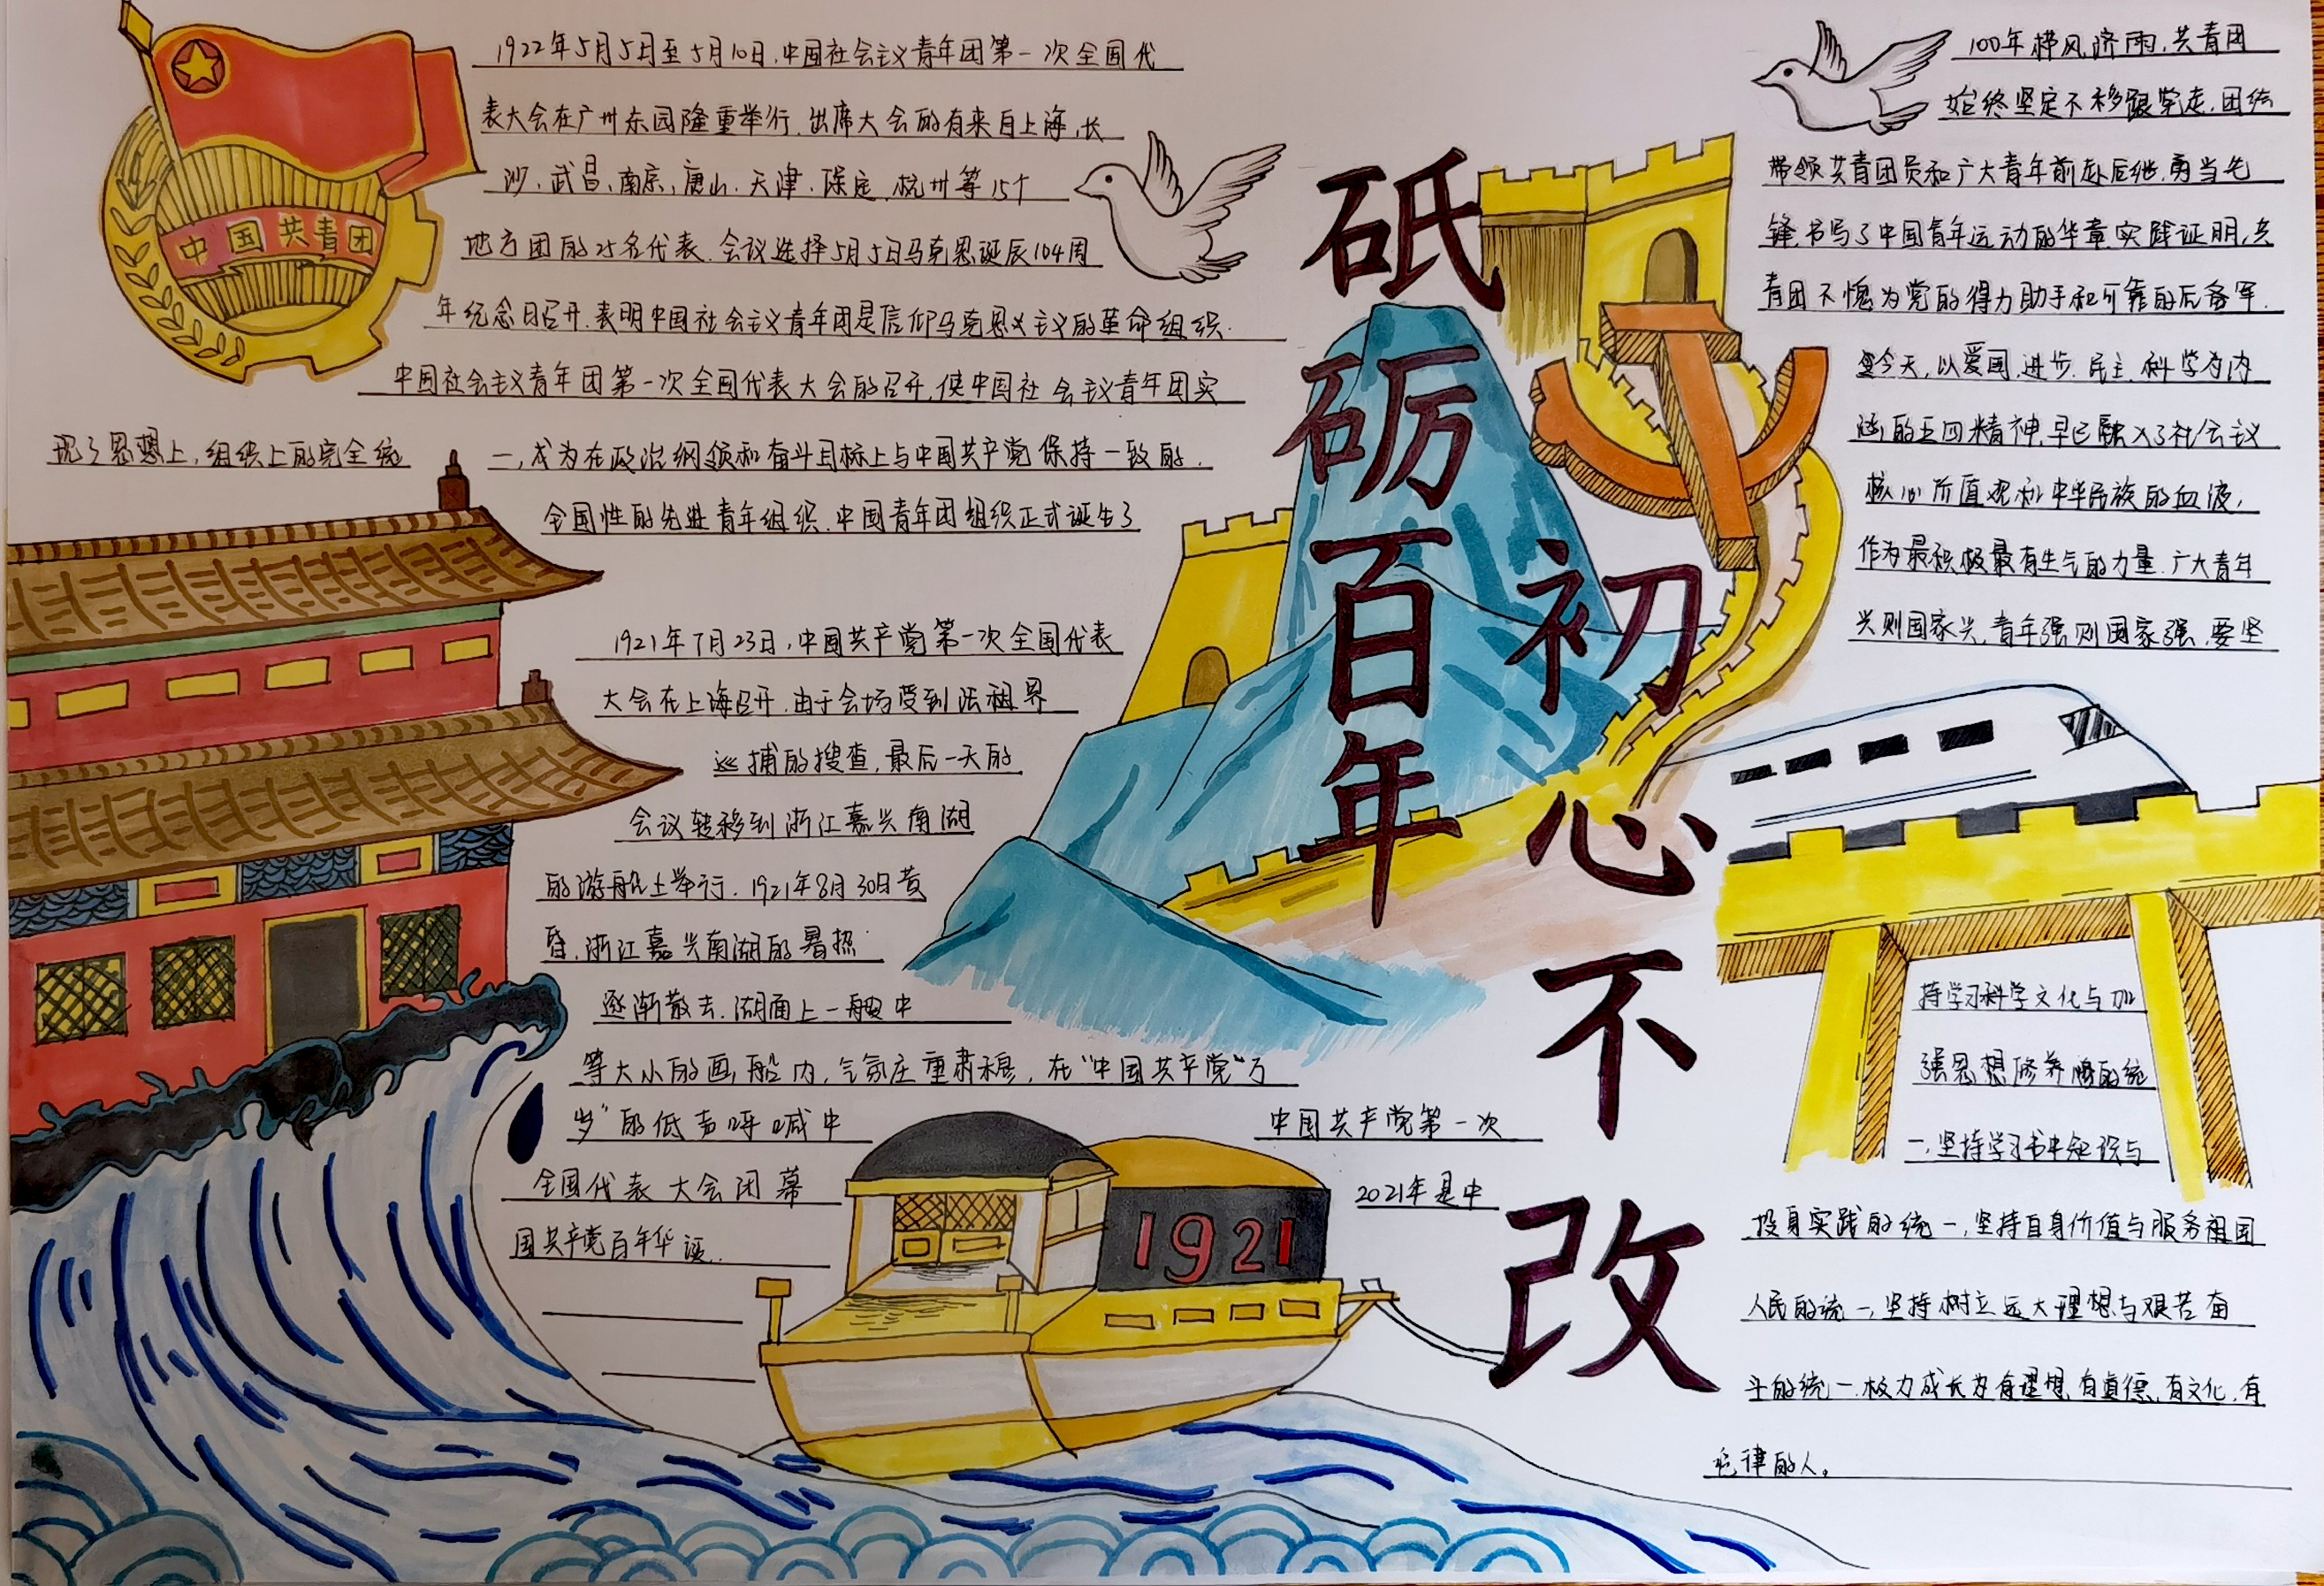 中国共青团
1922年5月5日至5月10日,中国社会主义青年团第一次全国代
表大会在广州东园隆重举行.出席大会的有来自上海,长
沙.武昌.南京,唐山.天津.保定.杭州等15个
地方团的25名代表.会议选择5月5日马克思诞辰104周
年纪念日召开.表明中国社会主义青年团是信仰马克思主义的革命组织.
中国社会主义青年团第一次全国代表大会的召开,使中国社会主义青年团实
现了思想上,组织上的完全统
一,成为在政治纲领和奋斗目标上与中国共产党保持一致的.
全国性的先进青年组织.中国青年团组织正式诞生了
1921年7月23日,中国共产党第一次全国代表
大会在上海召开.由于会场受到法租界
巡捕的搜查,最后一天的
会议转移到浙江嘉兴南湖
的游船上举行.1921年8月30日黄
昏,浙江嘉兴南湖的暑热
逐渐散去.湖面上一艘中
等大小的画船内,气氛庄重肃穆,在"中国共产党"万
岁"的低声呼喊中
中国共产党第一次
全国代表大会闭幕
2021年是中
国共产党百年华诞.
1921
砥砺百年
初心不改
100年栉风沐雨,共青团
始终坚定不移跟党走.团结
带领共青团员和广大青年前赴后继.勇当先
锋,书写了中国青年运动的华章,实践证明,共
青团不愧为党的得力助手和可靠的后备军.
今天,以爱国,进步.民主.科学为内
涵的五四精神,早已融入了社会主义
核心价值观和中华民族的血液,
作为最积极最有生气的力量.广大青年
兴则国家兴,青年强则国家强.要坚
持学习科学文化与加
强思想修养的统
一,坚持学习书本知识与
投身实践的统一,坚持自身价值与服务祖国
人民的统一,坚持树立远大理想与艰苦奋
斗的统一.极力成长为有理想,有道德,有文化,有
纪律的人。